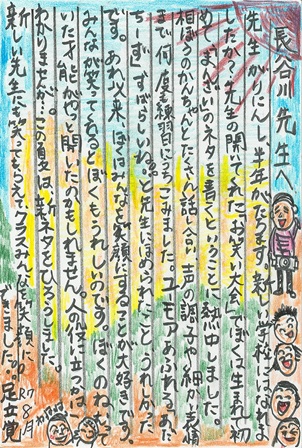 長谷川先生へ
先生がりにんし半年がたちます。新しい学校にはなれま
したか?先生の開いてくれたお笑い大会でぼくは生まれ初
めてまんざいのネタを書くということに熱中しました。
相ぼうのかんちゃんとたくさん話し合い声の調子や細か表情
まで何度も練習にうちこみました。ユーモアあふれるあた
ちーず、すばらしいね。と先生にほめられたこと、うれしかった
です。あれ以来、ぼくはみんなを笑顔にすることが大好きです。
みんなが笑ってくれるとぼくもうれしいのです。ぼくのねむって
いた才能がやっと開いたのかもしれません。人の役に立つ
わりませんが…この夏は、新ネタをひろうしました
新しい先生にも笑ってもらえてクラスみんなを笑顔に
できました。
R7
8月
足立